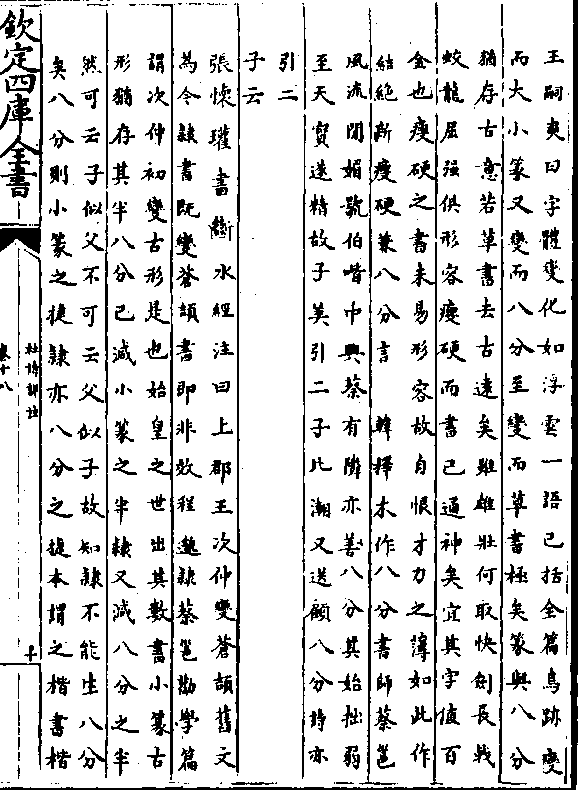 王嗣奭曰字體變化如浮雲一語已括全篇鳥跡變
而大小篆又變而八分至變而草書極矣篆與八分
猶存古意若草書去古遠矣雖雄壯何取快劍長㦸
蛟龍屈强俱形容瘦硬而書已通神矣宜其字值百
金也瘦硬之書未易形容故自恨才力之薄如此作
結絶斷瘦硬兼八分言 韓擇木作八分書師蔡邕
風流閒媚號伯喈中興蔡有鄰亦善八分其始拙弱
至天寳遂精故子美引二子比潮又送顧八分詩亦
引二
子云
張懷瓘書斷水經注曰上郡王次仲變蒼頡舊文
為今隸書既變蒼頡書即非效程邈隸蔡邕勸學篇
謂次仲初變古形是也始皇之世出其數書小篆古
形猶存其半八分已減小篆之半隸又減八分之半
然可云子似父不可云父似子故知隸不能生八分
矣八分則小篆之捷隸亦八分之捷本謂之楷書楷
欽定四庫全書
杜詩詳註
卷十八